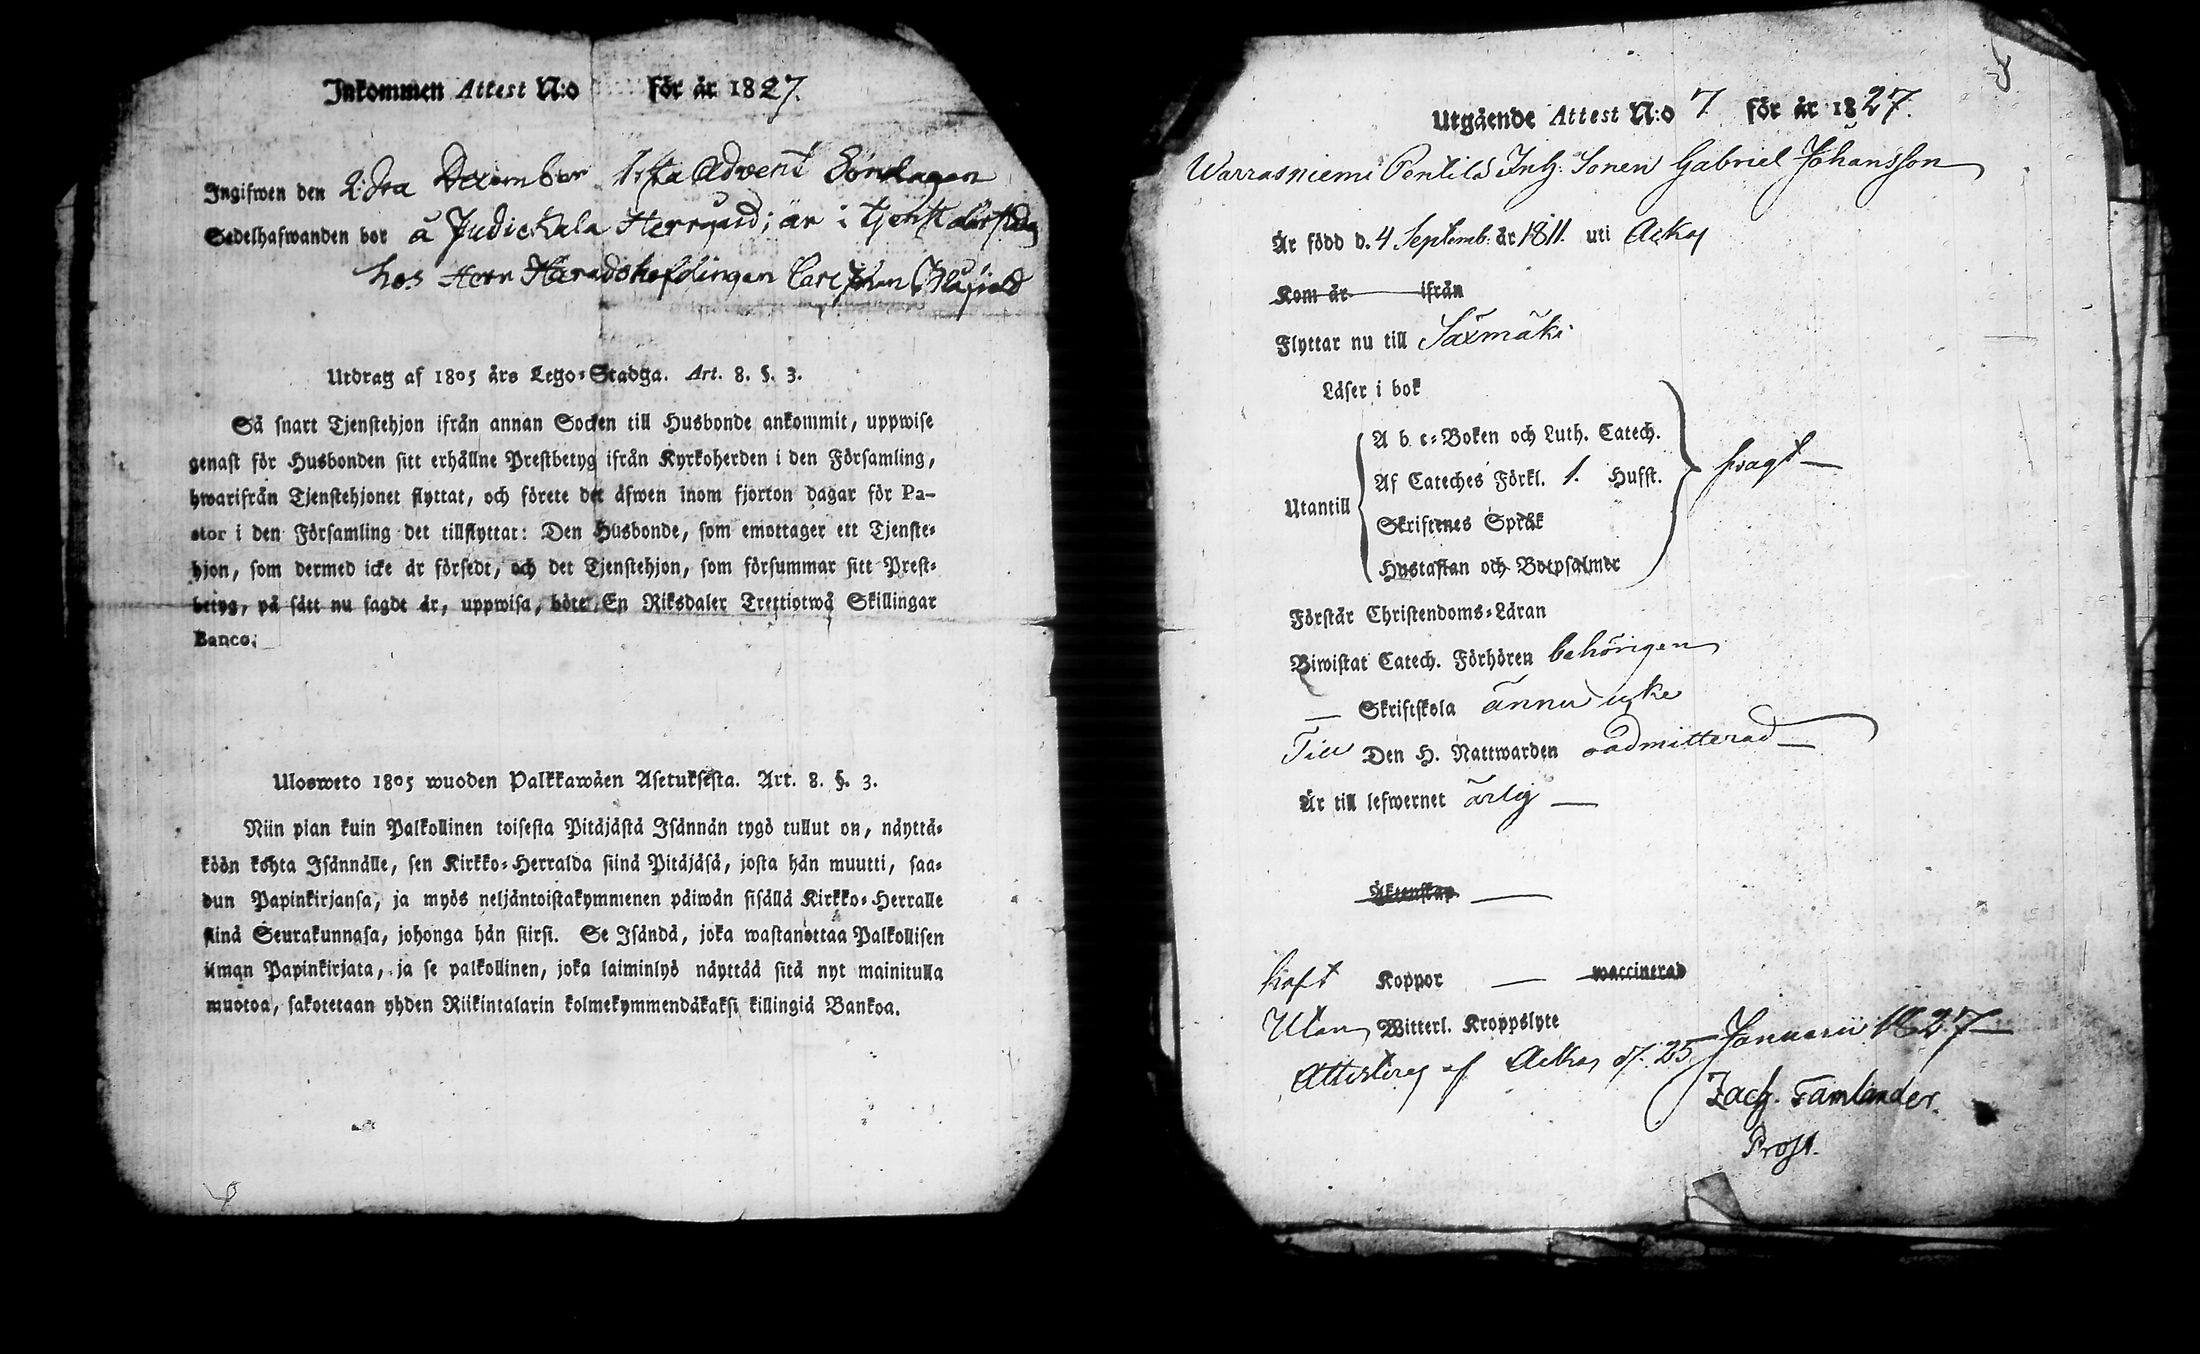 Inkommen Attest N:o för år 1827.
Ingifwen den 2:dra December 1:sta Advent Söndagen
Sedelhafwanden bor å Judickala Herrgård; är i tjenst
hos Herr Häradshöfdingen Carl Johan
Utdrag af 1805 års Lego-Stadga. Art. 8. §. 3.
Så snart Tjenstehjon ifrån annan Socken till Husbonde ankommit, uppwise
genast för Husbonden sitt erhållne Prestbetyg ifrån Kyrkoherden i den Församling,
hwarifrån Tjenstehjonet flyttat, och förete det äfwen inom fjorton dagar för Pa-
stor i den Församling det tillflyttat: Den Husbonde, som emottager ett Tjenste-
hjon, som dermed icke är försedt, och det Tjenstehjon, som försummar sitt Prest-
betyg, på sätt nu sagdt är, uppwisa, böte En Riksdaler Trettiotwå Skillingar
Banco.
Ulosweto 1805 wuoden Palkkawäen Asetuksesta. Art. 8. §. 3.
Niin pian kuin Palkollinen toisesta Pitäjästä Isännän tygö tullut on, näyttä-
köön kohta Isännälle, sen Kirkko-Herralda siinä Pitäjäsä, josta hän muutti, saa-
dun Papinkirjansa, ja myös neljäntoistakymmenen päiwän sisällä Kirkko-Herralle
siinä Seurakunnasa, johonga hän siirsi. Se Isändä, joka wastanottaa Palkollisen
ilman Papinkirjata, ja se palkollinen, joka laiminlyö näyttää sitä nyt mainitulla
muotoa, sakotetaan yhden Riikintalarin kolmekymmendäkaksi killingiä Bankoa.
Utgående Attest N:o 7 för år 1827.
Warrasniemi Pentilä Inh. Sonen Gabriel Johansson
Är född d. 4 Septemb. år 1811. uti Ackas
Kom år ifrån
Flyttar nu till Säxmäki
Läser i bok
A b c-Boken och Luth. Catech.
Af Cateches Förkl. 1. Hufst.
Utantill
Skriftenes Språk
Hustaflan och Botpsalmer
svagt
Förstår Christendoms-Läran
Biwistat Catech. Förhören behörigen
Skriftskola ännu icke
Till Den H. Nattwarden oadmitterad
Är till lefwernet ärlig
Äktenskap
haft Koppor waccinerad
Utan Witterl. Kroppslyte
Attesteras af Ackas d. 25 Januarii 1827
Zach. Tamlander.
Prost.